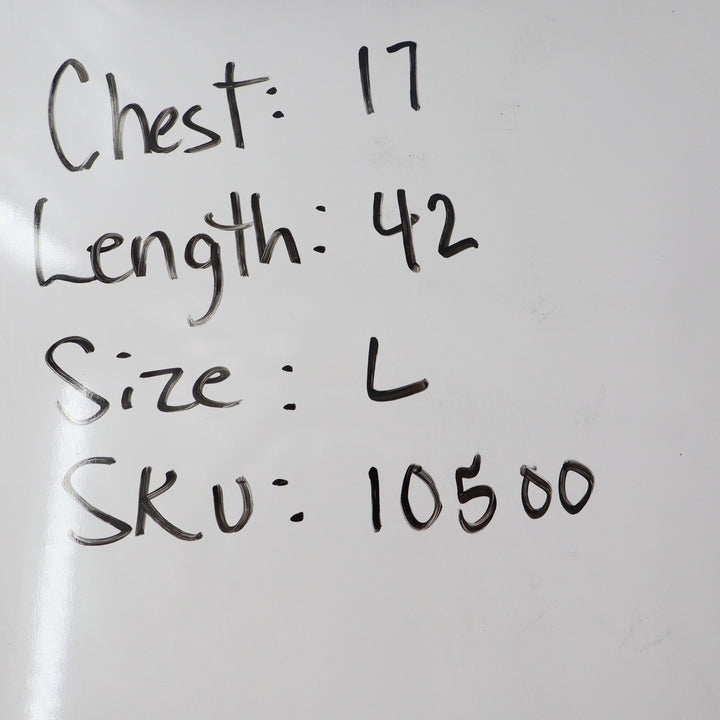 Chest: 17
Length: 42
Size: L
SKU: 10500